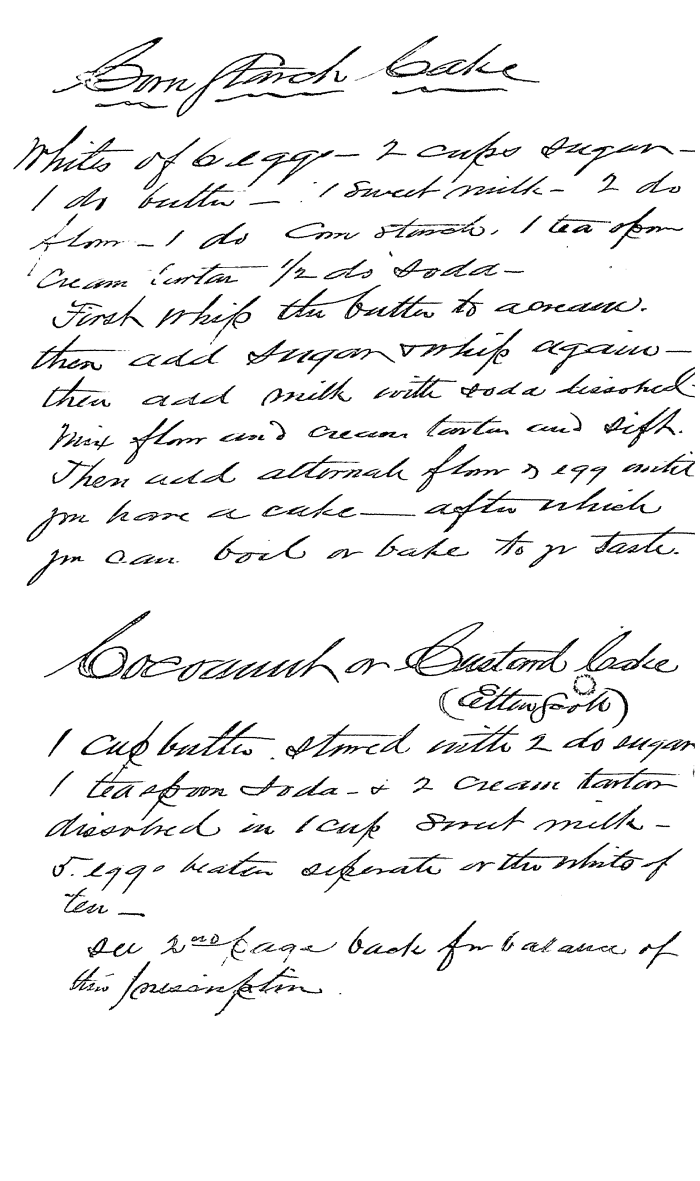 Corn Starch Cake
Whites of 6 eggs – 2 cups sugar –
1 do butter – 1 sweet milk – 2 do
flour – 1 do Corn starch, 1 tea spoon
Cream tartar 1/2 do soda –
First whip the butter to a cream.
then add sugar & whip again –
then add milk with soda dissolved
Mix flour and cream tartar and sift.
Then add alternate flour & egg until
you have a cake — after which
you can boil or bake to yr taste.
Cocoanut or Custard Cake
(Etta Scott)
1 cup butter stirred with 2 do sugar
1 teaspoon soda – & 2 cream tartar
dissolved in 1 cup sweet milk –
5. eggs beaten seperate or the whites of
ten –
see 2nd page back for balance of
this prescription.